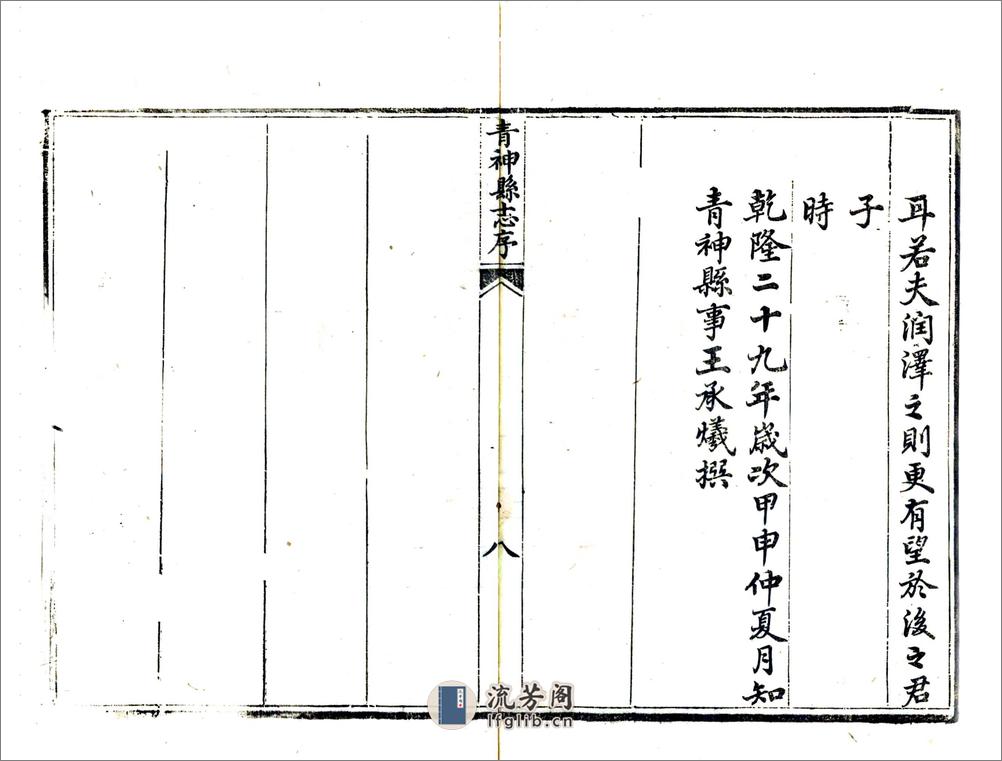 耳若夫潤澤之則更有望於後之君
子
時
乾隆二十九年歲次甲申仲夏月知
青神縣事王承爔撰
青神縣志序
八
流芳阁
lfglib.cn